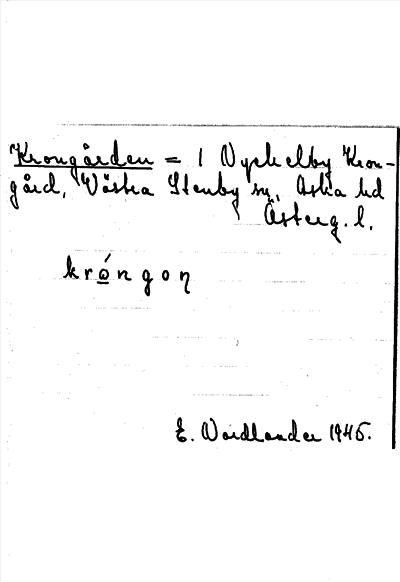 Krongården = 1 Nyckelby Kron-
gård, Västra Stenby sn, Aska hd
Österg. l.
krǿngoŋ
E. Nordlander 1945.